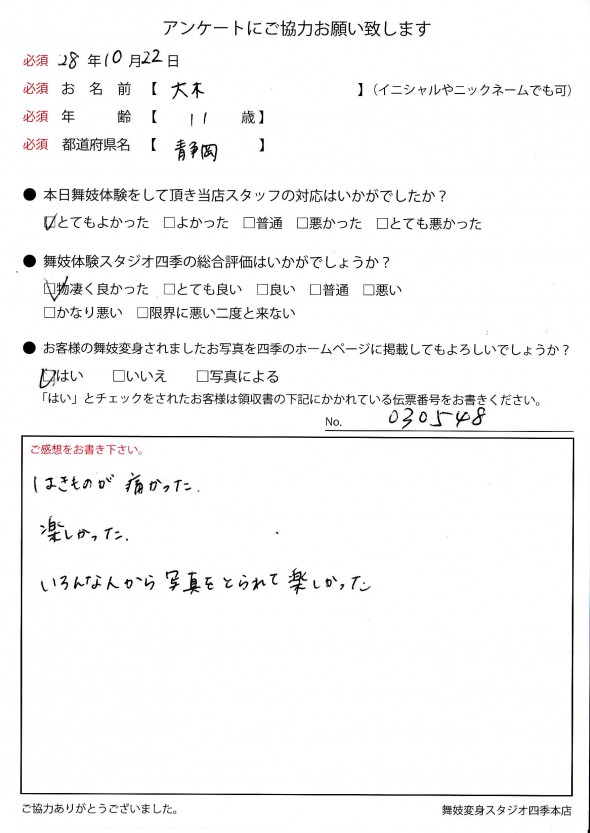 アンケートにご協力お願い致します
必須 28年10月22日
必須 お名前【 大木 】(イニシャルやニックネームでも可)
必須 年齢【 11 歳】
必須 都道府県名【 静岡 】
● 本日舞妓体験をして頂き当店スタッフの対応はいかがでしたか？
☑とてもよかった □よかった □普通 □悪かった □とても悪かった
● 舞妓体験スタジオ四季の総合評価はいかがでしょうか？
☑物凄く良かった □とても良い □良い □普通 □悪い
□かなり悪い □限界に悪い二度と来ない
● お客様の舞妓変身されましたお写真を四季のホームページに掲載してもよろしいでしょうか？
☑はい □いいえ □写真による
「はい」とチェックをされたお客様は領収書の下記にかかれている伝票番号をお書きください。
No. 030548
ご感想をお書き下さい。
はきものが 痛かった.
楽しかった.
いろんな人から 写真をとられて 楽しかった
ご協力ありがとうございました。
舞妓変身スタジオ四季本店